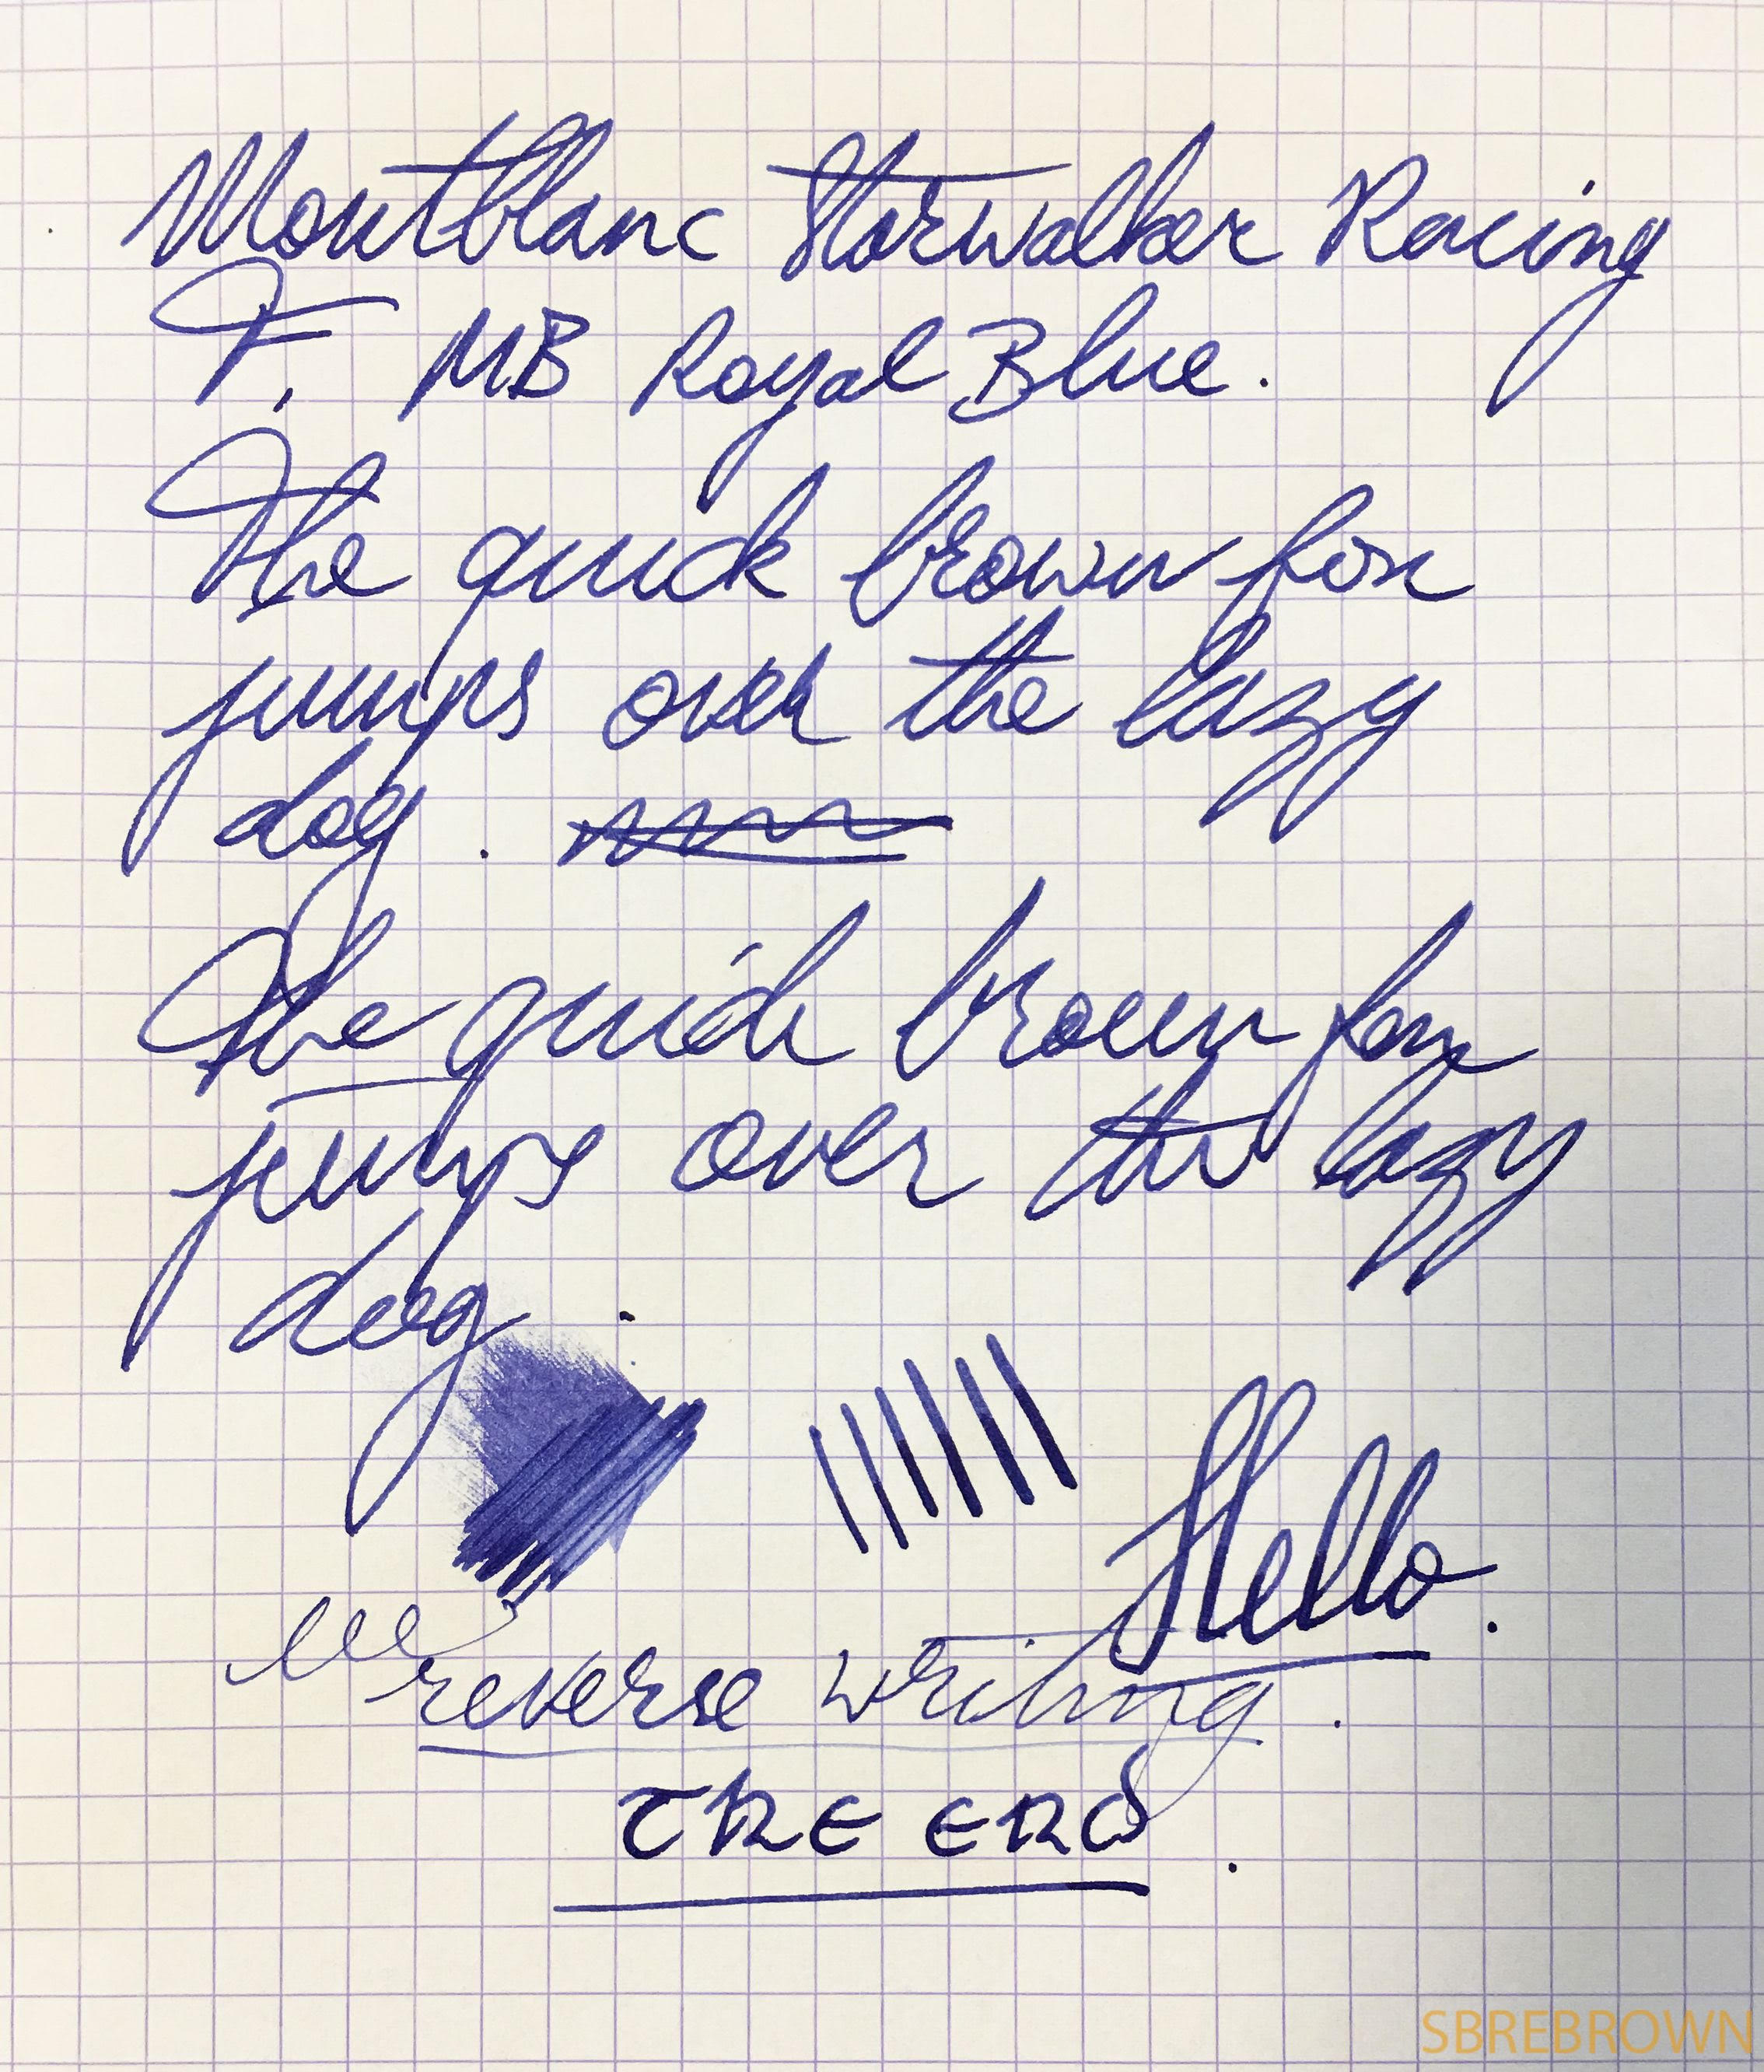 Montblanc Starwalker Racing
F. MB Royal Blue.
The quick brown fox
jumps over the lazy
dog.
The quick brown fox
jumps over the lazy
dog.
Hello.
reverse writing.
THE END.
SBREBROWN